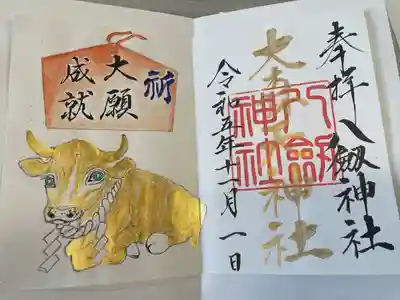 奉拝 八劔神社
八劔
神社
令和五年十一月一日
祈
大願
成就